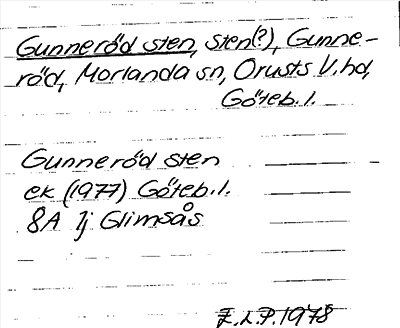 Gunneröd sten, sten(?), Gunne-
röd, Morlanda sn, Orusts V. hd,
Göteb. l.
Gunneröd sten
ek (1977) Göteb. l.
8A 1j Glimsås
E.L.P. 1978